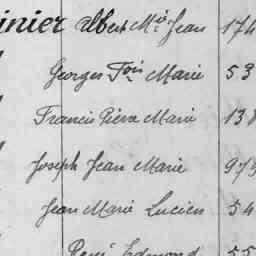 inier Albert Mie Jean 174
Georges Fois Marie 53
Francis Pierre Marie 138
Joseph Jean Marie 979
Jean Marie Lucien 54
René Edmond 55